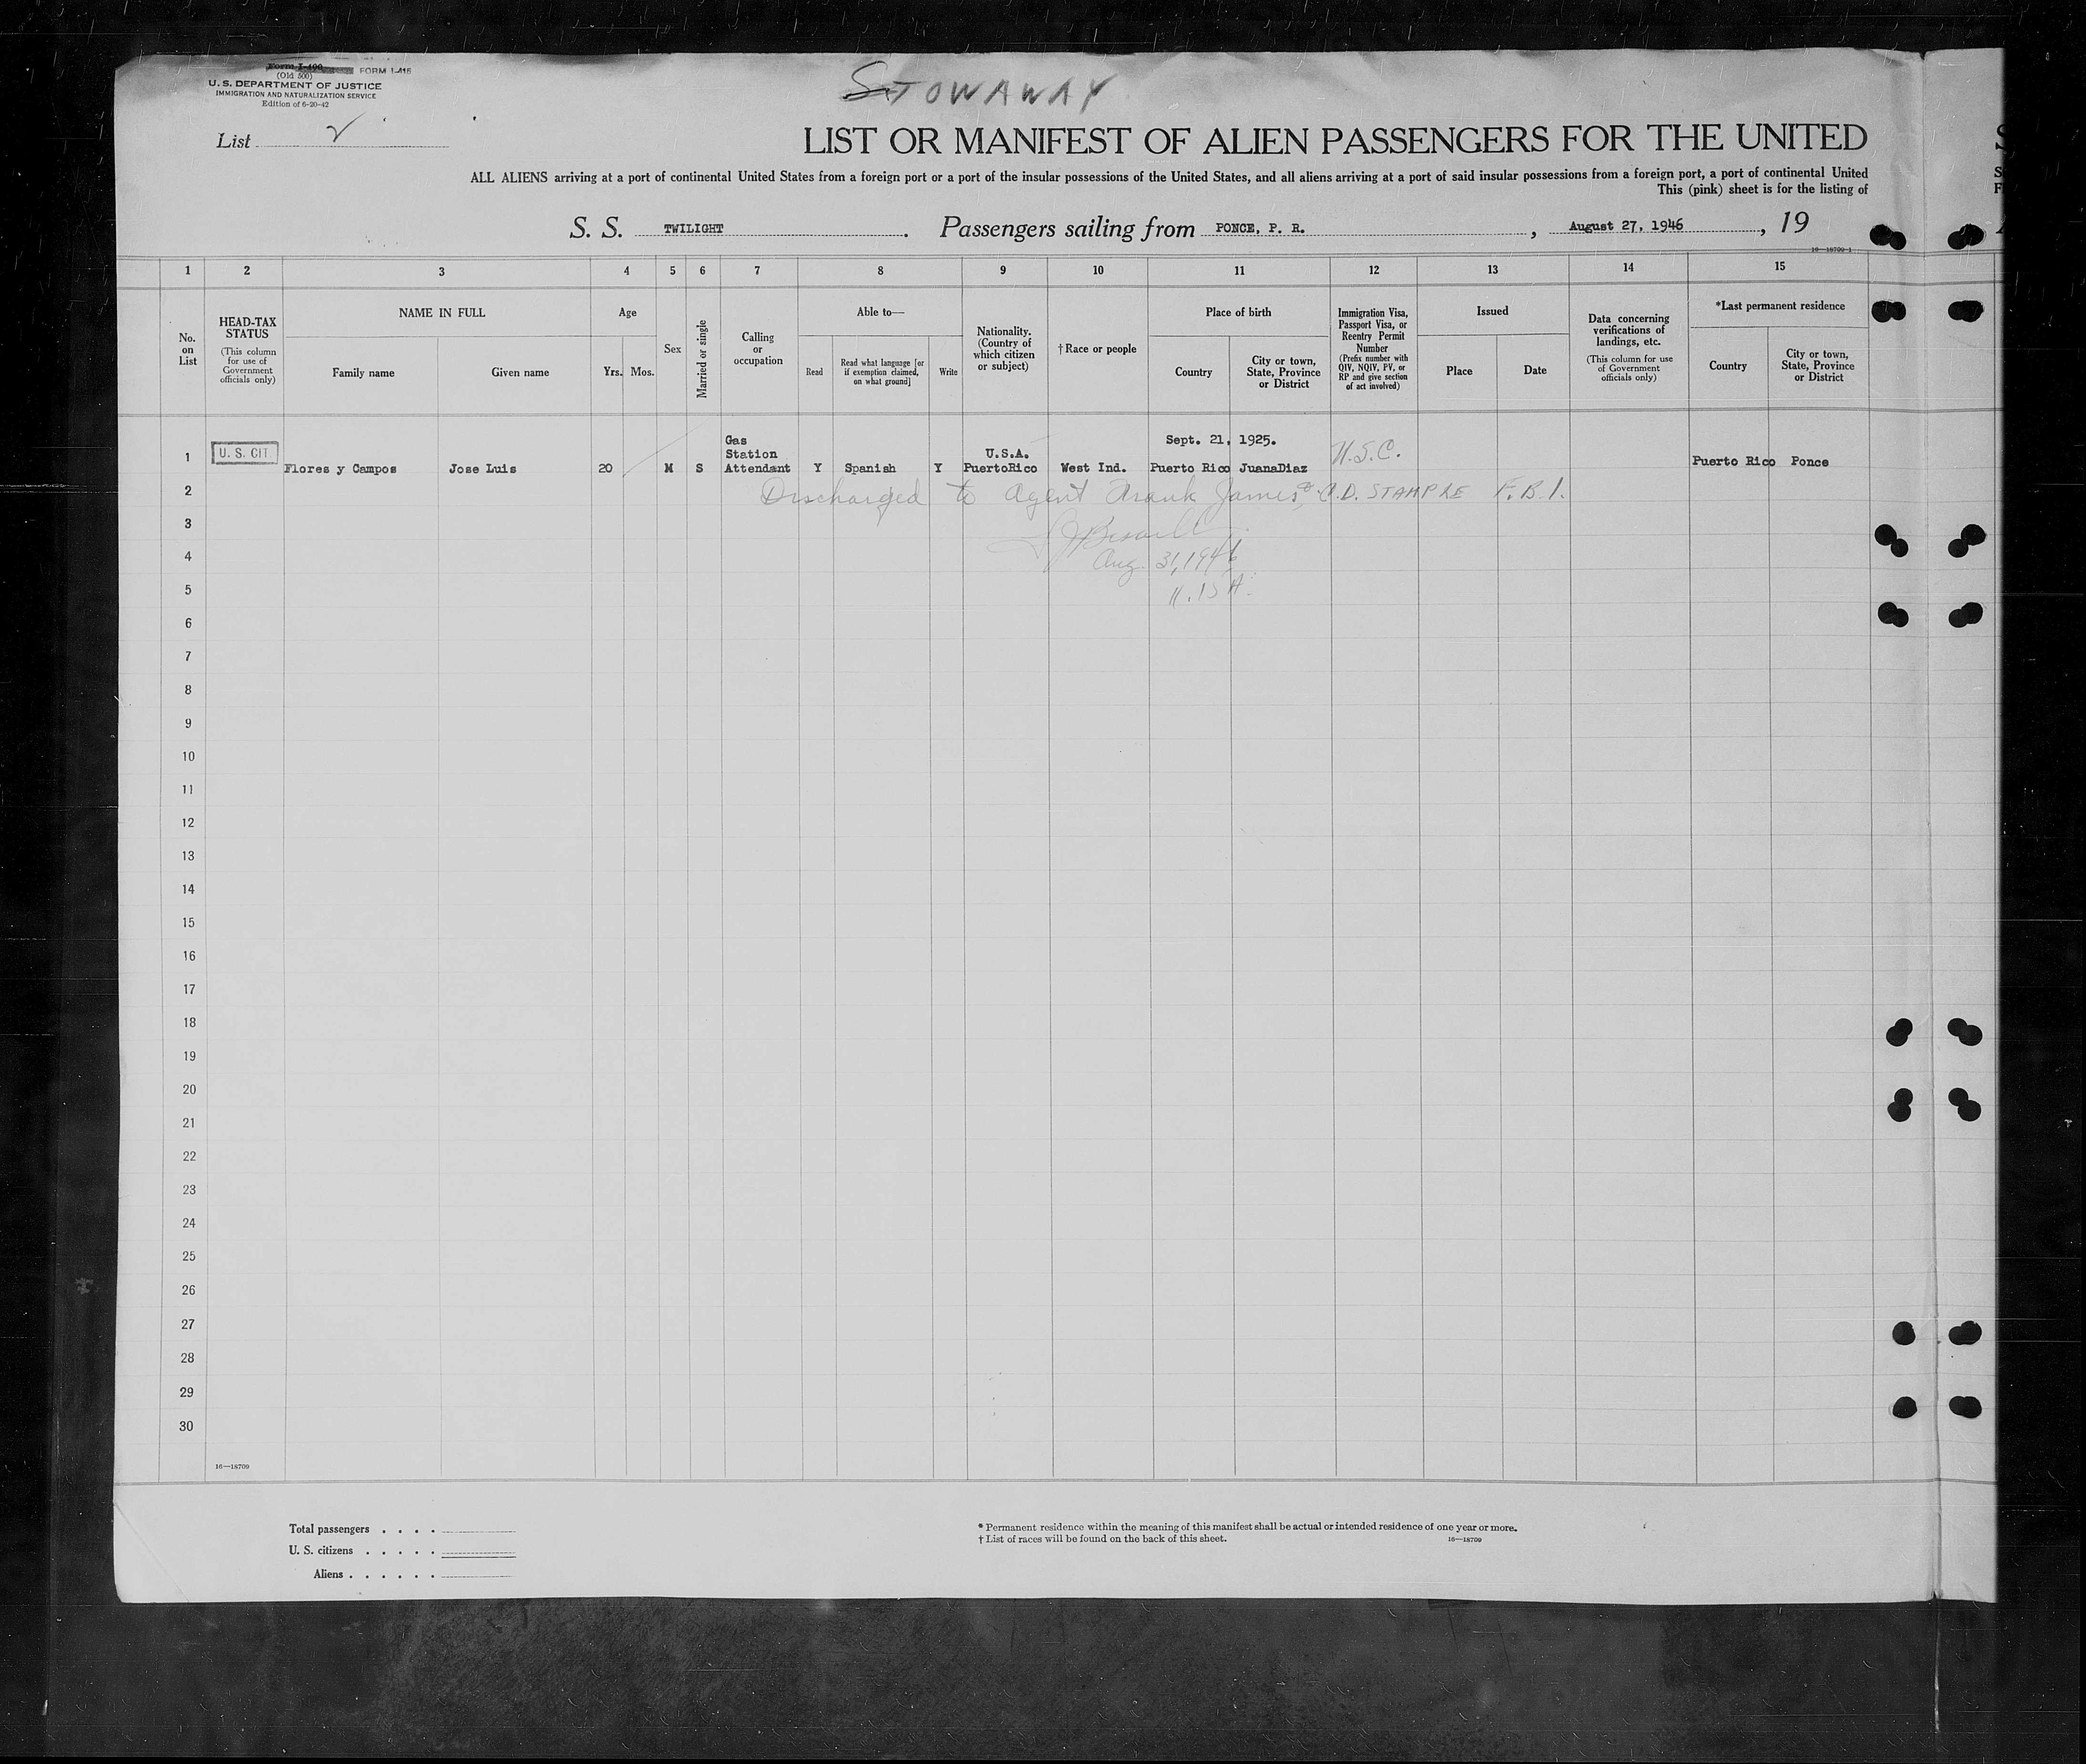 STOWAWAY
Form I-400 FORM I-415
(Old 500)
U. S. DEPARTMENT OF JUSTICE
IMMIGRATION AND NATURALIZATION SERVICE
Edition of 6-20-42
List
LIST OR MANIFEST OF ALIEN PASSENGERS FOR THE UNITED
ALL ALIENS arriving at a port of continental United States from a foreign port or a port of the insular possessions of the United States, and all aliens arriving at a port of said insular possessions from a foreign port, a port of continental United
This (pink) sheet is for the listing of
S. S. TWILIGHT. Passengers sailing from PONCE, P. R., August 27, 1946, 19
16—18709-1
1 2 3 4 5 6 7 8 9 10 11 12 13 14 15
No. on List
HEAD-TAX STATUS
(This column for use of Government officials only)
NAME IN FULL
Family name Given name
Age
Yrs. Mos.
Sex
Married or single
Calling or occupation
Able to—
Read
Read what language [or if exemption claimed, on what ground]
Write
Nationality. (Country of which citizen or subject)
†Race or people
Place of birth
Country
City or town, State, Province or District
Immigration Visa, Passport Visa, or Reentry Permit Number
(Prefix number with QIV, NQIV, PV, or RP and give section of act involved)
Issued
Place Date
Data concerning verifications of landings, etc.
(This column for use of Government officials only)
*Last permanent residence
Country
City or town, State, Province or District
1 U. S. CIT Flores y Campos Jose Luis 20 M S Gas Station Attendant Y Spanish Y U.S.A. PuertoRico West Ind. Sept. 21, 1925. Puerto Rico JuanaDiaz U.S.C. Puerto Rico Ponce
2 Discharged to Agent Frank James, & C.D. STAMPRE F.B.I.
3
4 Aug. 31, 1946
5 11.15 A.
6
7
8
9
10
11
12
13
14
15
16
17
18
19
20
21
22
23
24
25
26
27
28
29
30
16—18709
Total passengers . . . .
U. S. citizens . . . . .
Aliens . . . . . .
* Permanent residence within the meaning of this manifest shall be actual or intended residence of one year or more.
† List of races will be found on the back of this sheet. 16—18709